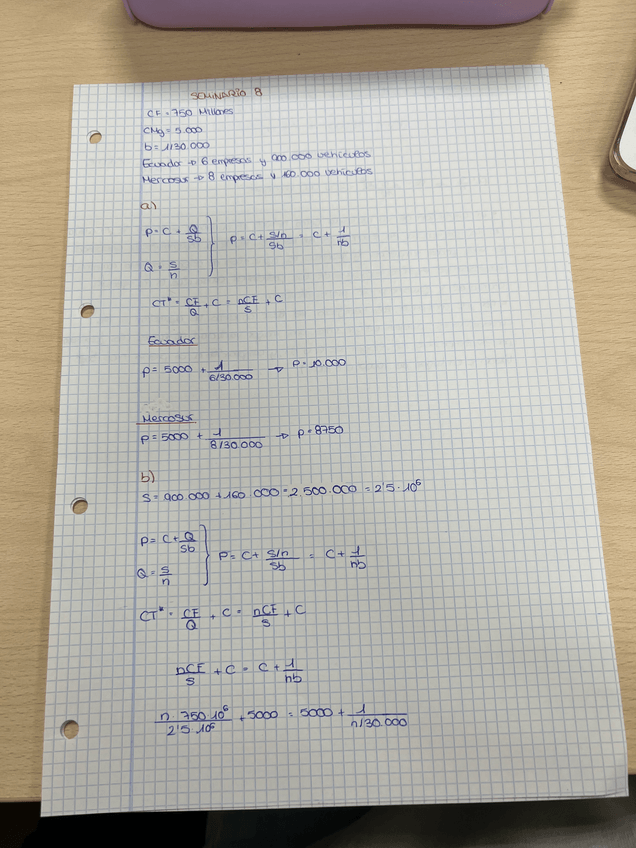 SEMINARIO 8
CF = 750 Millones
CMg = 5.000
b = 1/30.000
Ecuador → 6 empresas y 900.000 vehículos
Mercosur → 8 empresas y 160.000 vehículos
a)
P = C + Q/Sb
Q = S/n
P = C + (S/n)/Sb = C + 1/nb
CT* = CF/Q + C = nCF/S + C
Ecuador
P = 5000 + 1/(6/30.000) → P = 10.000
Mercosur
P = 5000 + 1/(8/30.000) → P = 8750
b)
S = 900.000 + 160.000 = 2.500.000 = 2'5·10⁶
P = C + Q/Sb
Q = S/n
P = C + (S/n)/Sb = C + 1/nb
CT* = CF/Q + C = nCF/S + C
nCF/S + C = C + 1/nb
n·750·10⁶/2'5·10⁶ + 5000 = 5000 + 1/(n/30.000)